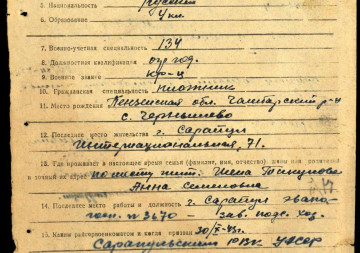 5. Национальность русский
6. Образование 4 кл.
7. Военно-учетная специальность 134
8. Должностная квалификация стр год.
9. Воинское звание кр-ц
10. Гражданская специальность плотник
11. Место рождения Пензенская обл. Чембарский р-н
с. Чернышево
12. Последнее место жительства г. Сарапул
Интернациональная, 71.
13. Где проживает в настоящее время семья (фамилия, имя, отчество) жены или родителей
и точный их адрес по месту жит. Жена
Анна Семеновна
14. Последнее место работы и должность г. Сарапул эвако-
госп. № 3670 – зав. подс. хоз.
15. Каким райвоенкоматом и когда призван 30/X-43г.
Сарапульским РВК УАССР